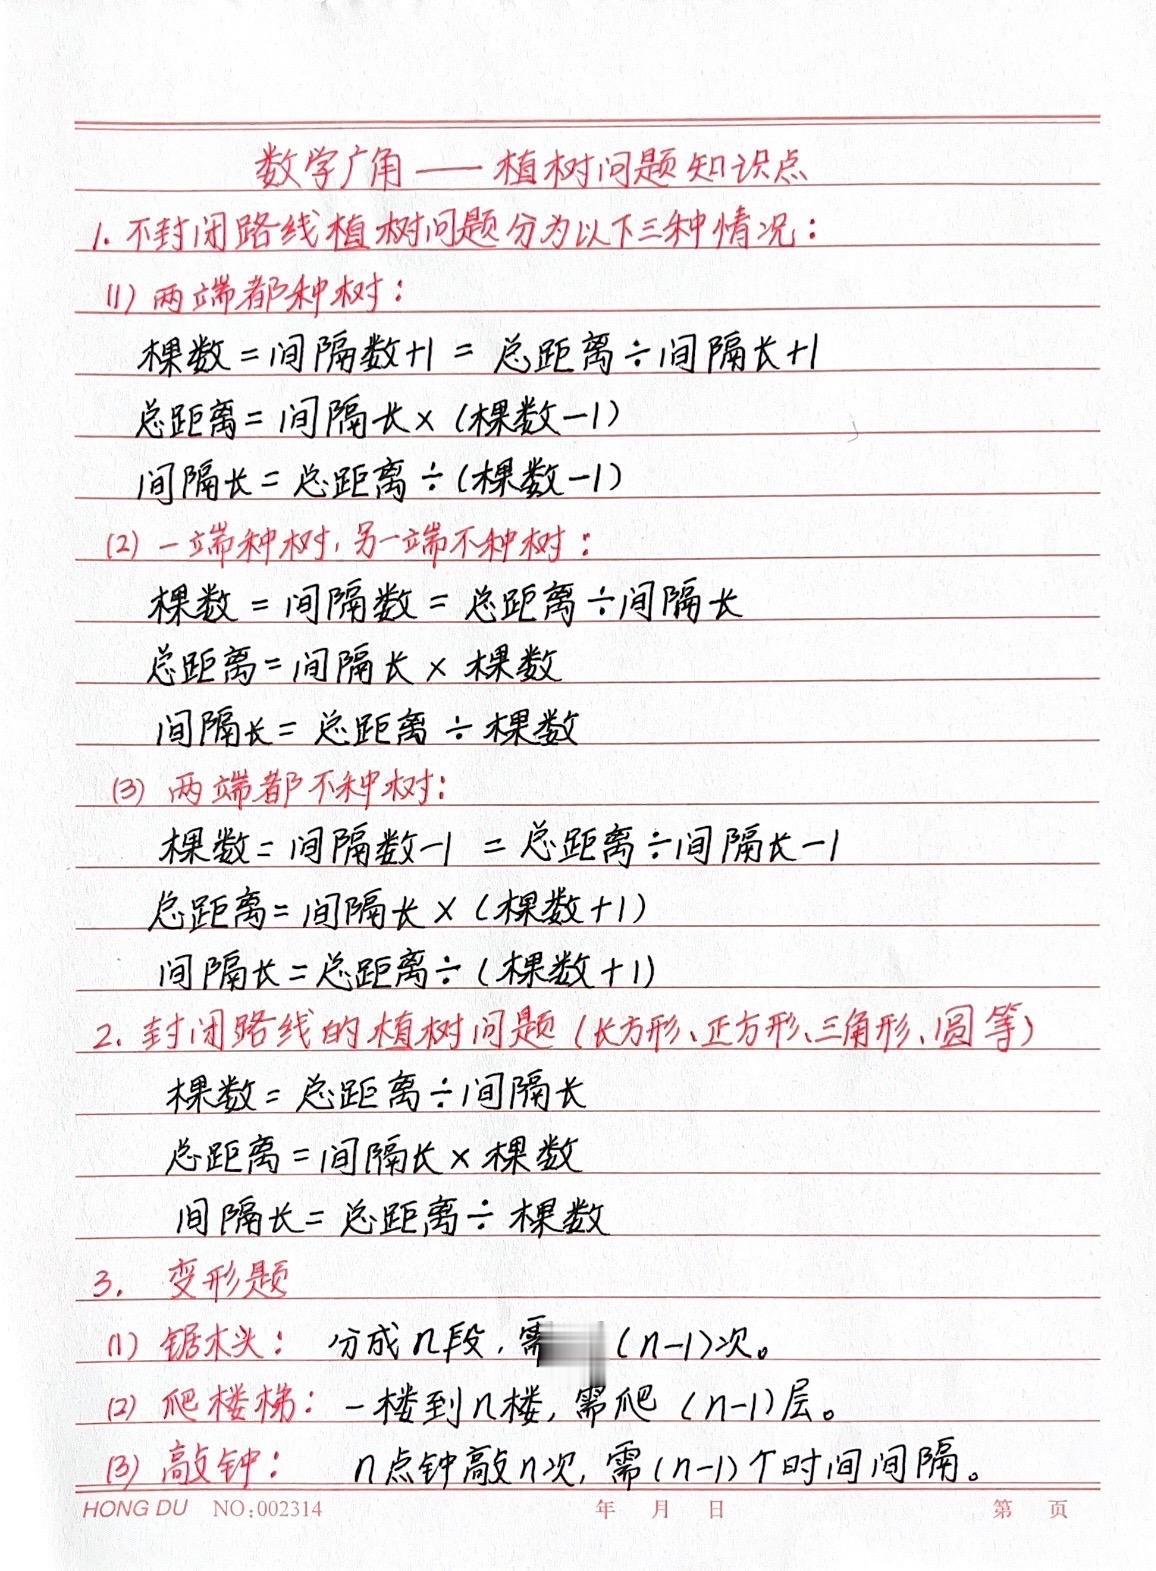 数学广角——植树问题知识点
1. 不封闭路线植树问题分为以下三种情况：
(1) 两端都种树：
棵数=间隔数+1 = 总距离÷间隔长+1
总距离=间隔长×(棵数-1)
间隔长=总距离÷(棵数-1)
(2) 一端种树,另一端不种树：
棵数=间隔数=总距离÷间隔长
总距离=间隔长×棵数
间隔长=总距离÷棵数
(3) 两端都不种树：
棵数=间隔数-1 =总距离÷间隔长-1
总距离=间隔长×(棵数+1)
间隔长=总距离÷(棵数+1)
2. 封闭路线的植树问题(长方形、正方形、三角形、圆等)
棵数=总距离÷间隔长
总距离=间隔长×棵数
间隔长=总距离÷棵数
3. 变形题
(1) 锯木头： 分成n段,需 (n-1)次。
(2) 爬楼梯：一楼到n楼,需爬(n-1)层。
(3) 敲钟： n点钟敲n次,需(n-1)个时间间隔。
HONG DU NO:002314 年 月 日 第 页